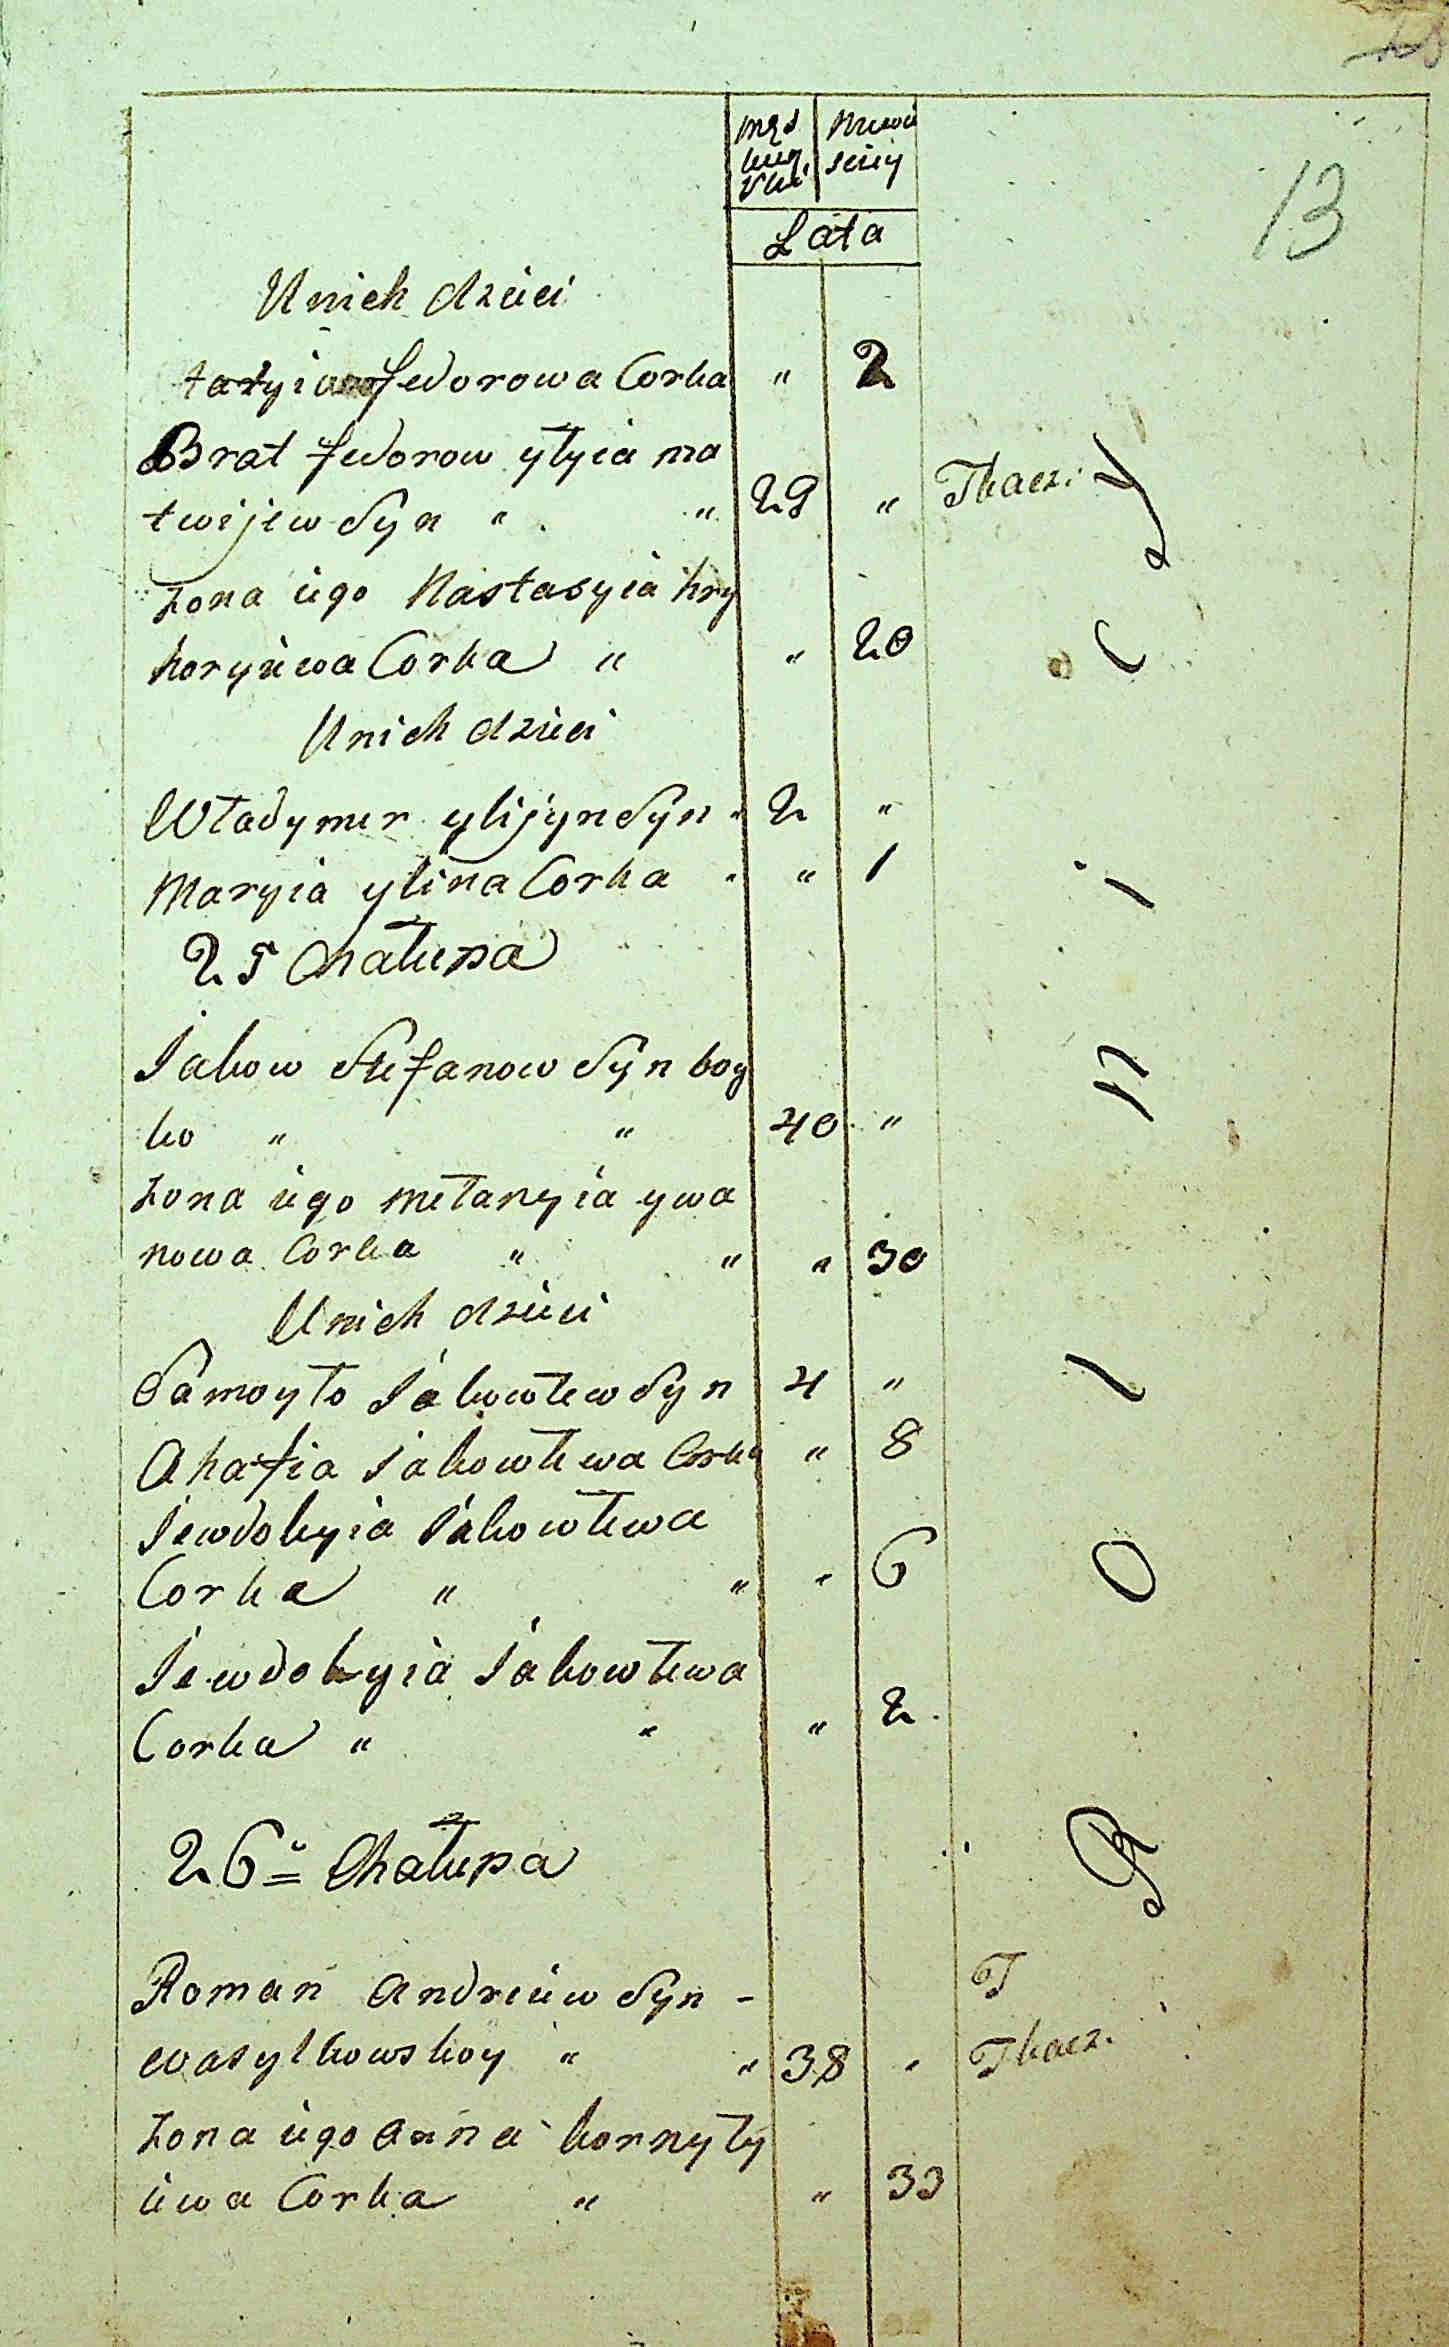 13
męs niewie
kiey sciey
płci
Lata
U nich dzieci
tatyiana fedorowa Corka " 2
Brat fedorow ylyia ma
twijew Syn " " 29 " Tkacz.
żona iego Nastasyia hry
horyiewa Corka " " 20
U nich dzieci
Władymer ylijyn Syn " 2 "
Maryia ylina Corka " " 1
25 Chałupa
Iakow Stefanow Syn boy
ko " " 40 "
żona iego Mełanyia ywa
nowa Corka " " " 30
U nich dzieci
Samoyło Iakowlew Syn 4 "
Ahafia Iakowlewa Corka " 8
Iewdokyia Iakowlewa
Corka " " " 6
Iewdokyia Iakowlewa
Corka " " " 2
26a Chałupa
Roman Andreiew Syn -
wasylkowskoy " " 38 " Tkacz.
żona iego Anna kornyly
iewa Corka " " 33
Rolnicy